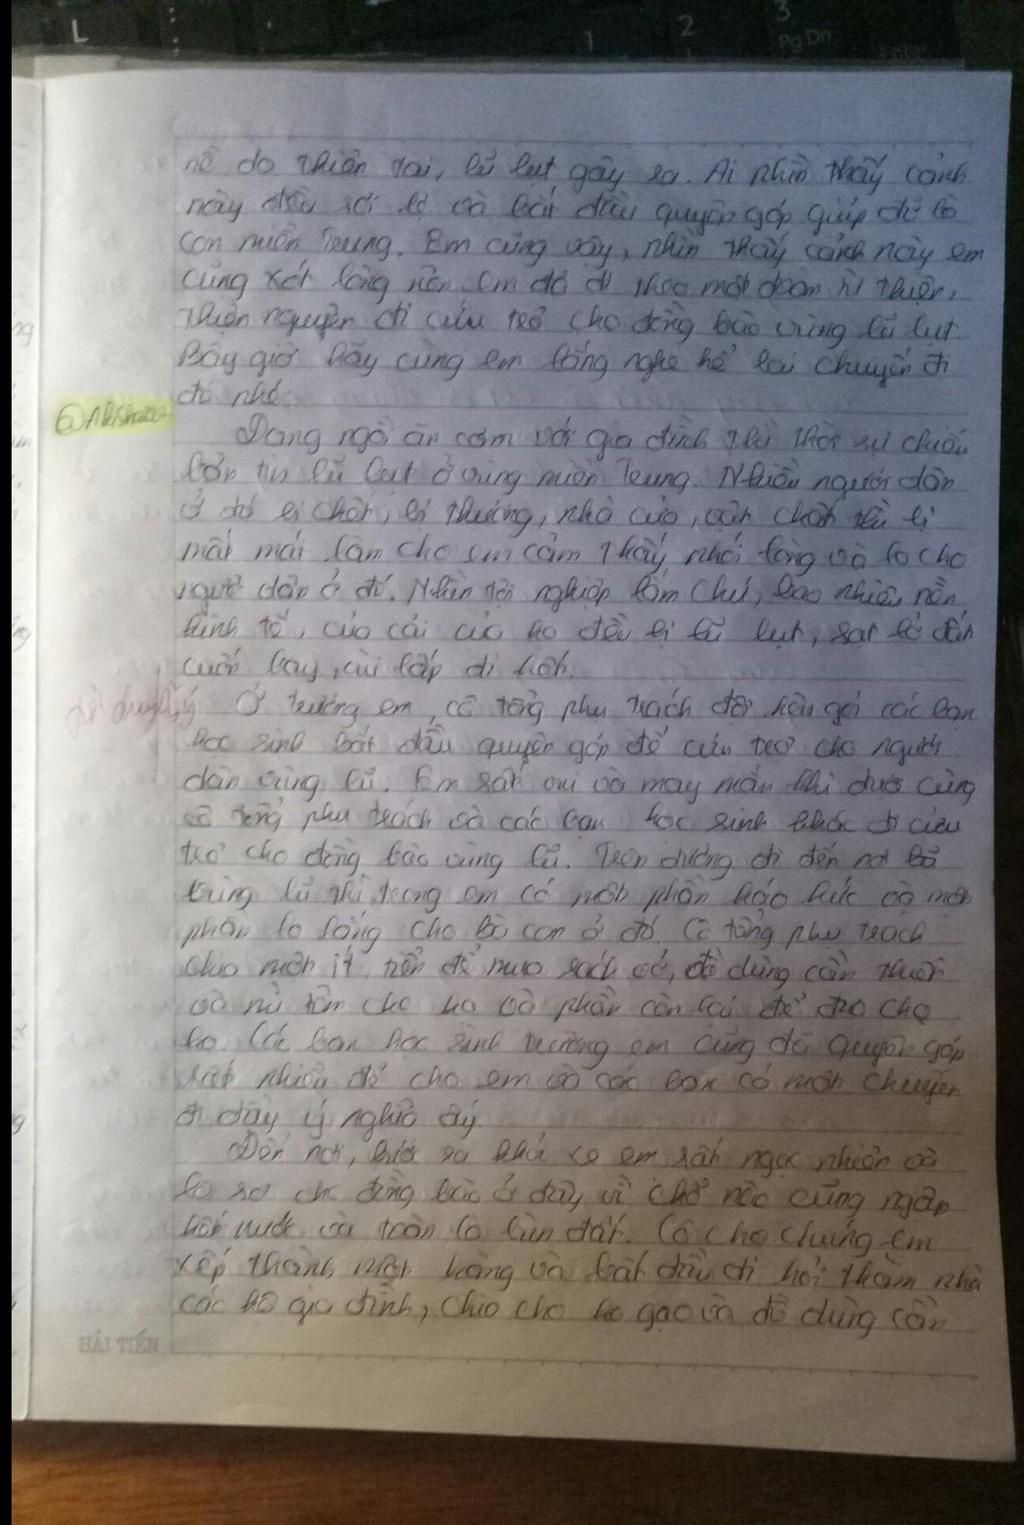 L
1
2
3
Pg Dn
Enter
nề do thiên tai, lũ lụt gây ra. Ai nhìn thấy cảnh
này đều và bắt đầu quyên góp giúp đỡ bà
con miền Trung. Em cũng vậy, nhìn thấy cảnh này em
cũng xót lòng nên em đã đi theo một đoàn từ thiện,
thiện nguyện đi cứu trợ cho đồng bào vùng lũ lụt
Bây giờ hãy cùng em lắng nghe kể lại chuyến đi
đó nhé.
Đang ngồi ăn cơm với gia đình thì thời sự chiếu
bản tin lũ lụt ở vùng miền Trung. Nhiều người dân
ở đó bị chết, bị thương, nhà cửa, vật chất thì bị
mất mát làm cho em cảm thấy nhói lòng và lo cho
người dân ở đó. Nhìn tội nghiệp lắm chứ, bao nhiêu nền
kinh tế, của cải của họ đều bị lũ lụt, sạt lở đất
cuốn bay, vùi lấp đi hết.
Ở trường em, cô tổng phụ trách đội kêu gọi các bạn
học sinh bắt đầu quyên góp để cứu trợ cho người
dân vùng lũ. Em rất vui và may mắn khi được cùng
cô tổng phụ trách và các bạn học sinh khác đi cứu
trợ cho đồng bào vùng lũ. Trên đường đi đến nơi bà
vùng lũ thì trong em có một phần háo hức và một
phần lo lắng cho bà con ở đó. Cô tổng phụ trách
đưa một ít tiền để mua sách vở, đồ dùng cần thiết
và mì tôm cho họ và phần còn lại để đưa cho
họ. Các bạn học sinh trường em cũng đã quyên góp
rất nhiều để cho em và các bạn có một chuyến
đi đầy ý nghĩa ấy.
Đến nơi, bước ra khỏi xe em rất ngạc nhiên và
lo sợ cho đồng bào ở đây vì chỗ nào cũng ngập
hết nước và toàn là bùn đất. Cô cho chúng em
xếp thành một hàng và bắt đầu đi hỏi thăm nhà
các hộ gia đình, chia cho họ gạo và đồ dùng cần
HẢI TIẾN